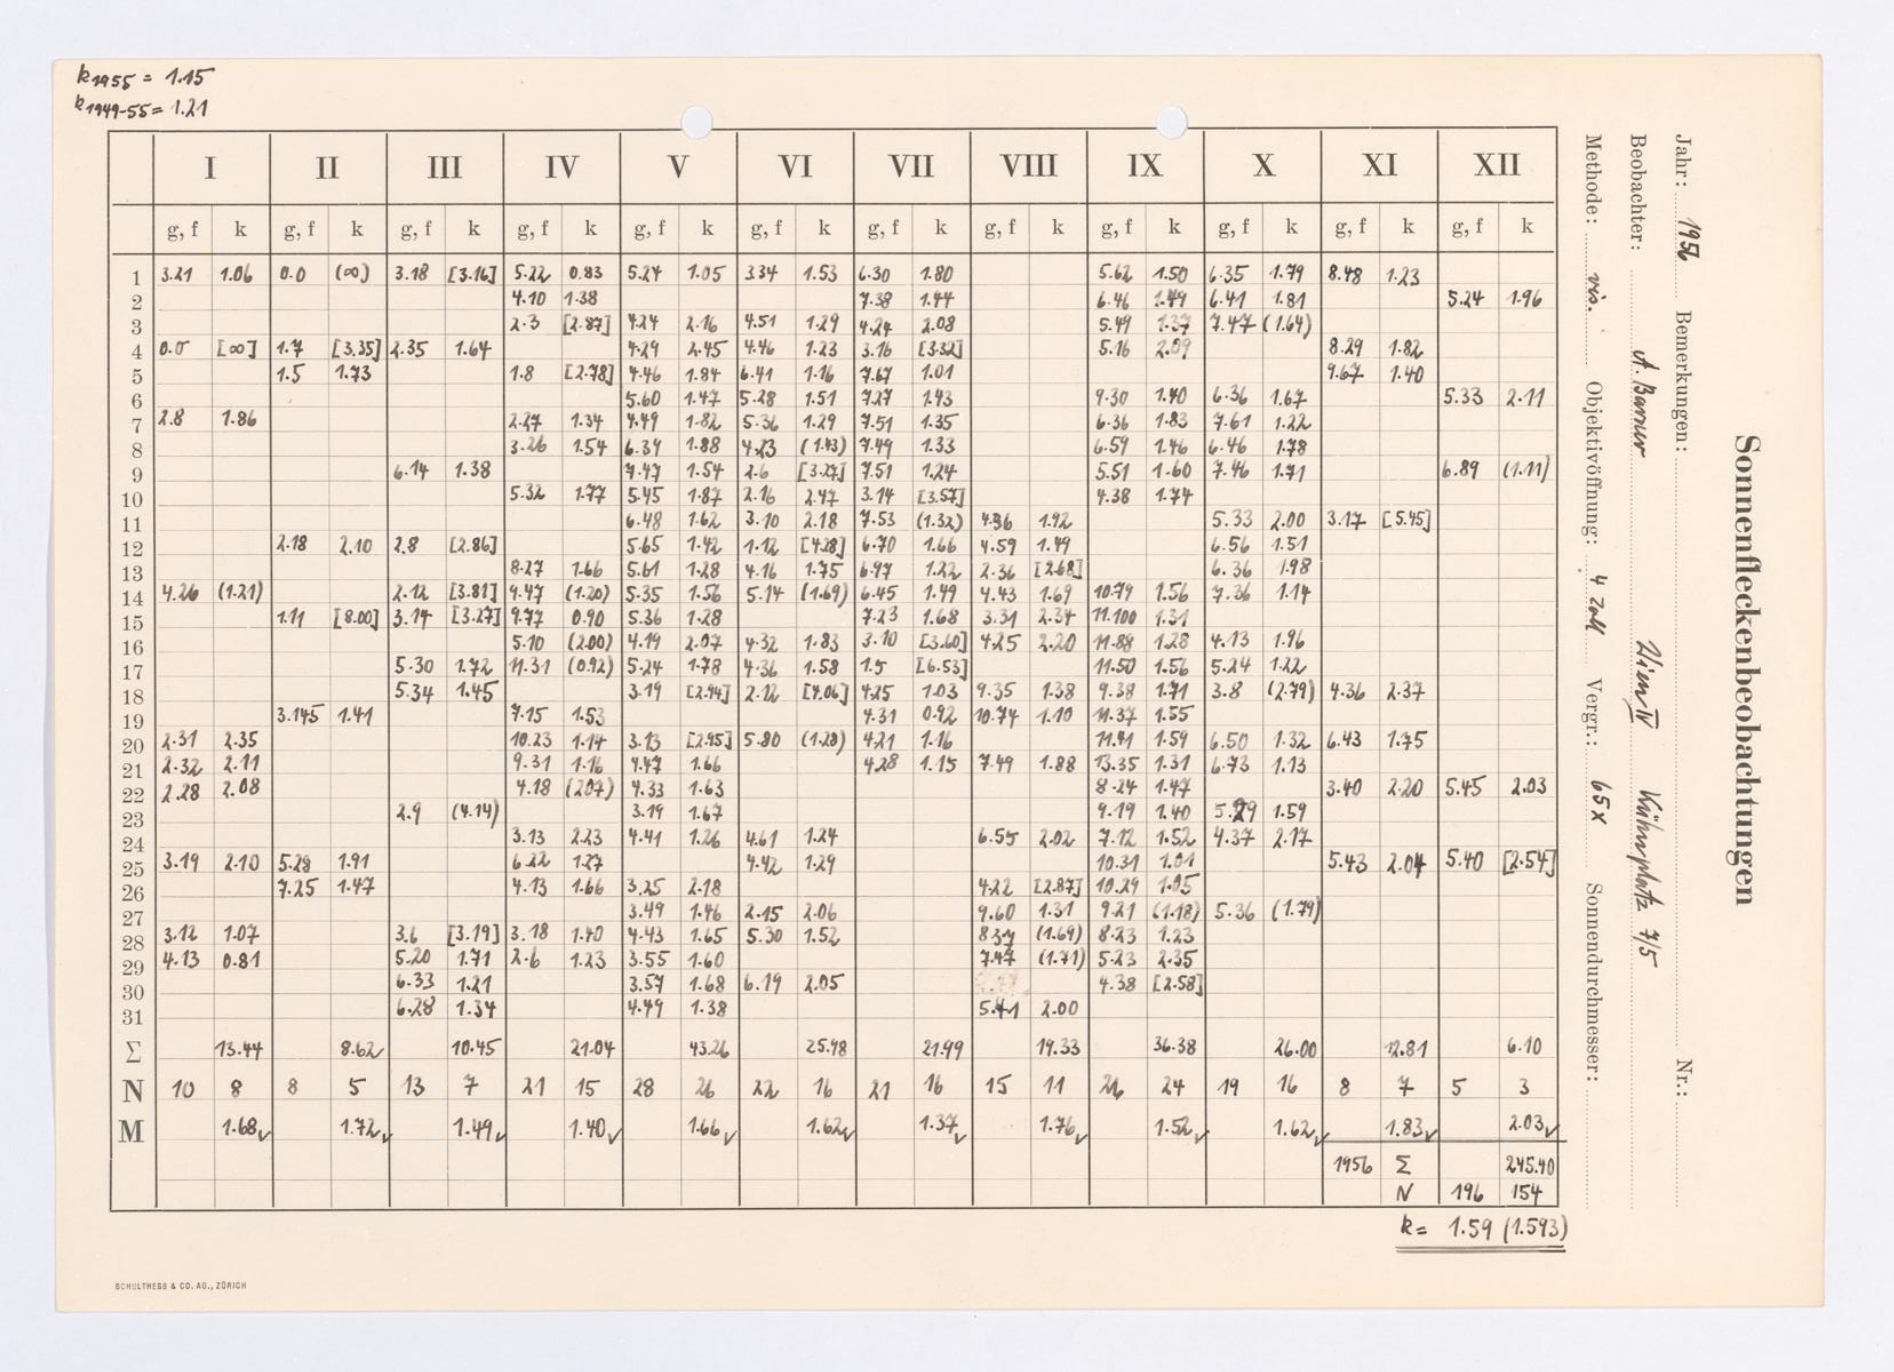 k1955 = 1.15
k1949-55 = 1.21
I II III IV V VI VII VIII IX X XI XII
g, f k g, f k g, f k g, f k g, f k g, f k g, f k g, f k g, f k g, f k g, f k g, f k
1 3.21 1.06 0.0 (∞) 3.18 [3.16] 5.22 0.83 5.27 1.05 3.34 1.53 6.30 1.80 5.62 1.50 6.35 1.79 8.48 1.23
2 4.10 1.38 7.38 1.44 6.46 1.49 6.41 1.81 5.24 1.96
3 2.3 [2.87] 4.24 2.16 4.51 1.29 4.24 2.08 5.49 1.37 7.47 (1.64)
4 0.0 [∞] 1.7 [3.35] 2.35 1.64 4.29 2.45 4.46 1.23 3.16 [3.32] 5.16 2.09 8.29 1.82
5 1.5 1.73 1.8 [2.78] 4.46 1.84 6.41 1.16 7.67 1.01 9.67 1.40
6 5.60 1.47 5.28 1.51 7.27 1.43 9.30 1.40 6.36 1.67 5.33 2.11
7 2.8 1.86 2.27 1.34 4.49 1.82 5.36 1.29 7.51 1.35 6.36 1.83 7.61 1.22
8 3.26 1.54 6.39 1.88 4.23 (1.43) 7.49 1.33 6.59 1.46 6.46 1.78
9 6.14 1.38 7.47 1.54 2.6 [3.27] 7.51 1.24 5.51 1.60 7.46 1.71 6.89 (1.11)
10 5.32 1.77 5.45 1.87 2.16 2.47 3.14 [3.57] 4.38 1.74
11 6.48 1.62 3.10 2.18 7.53 (1.32) 4.36 1.92 5.33 2.00 3.17 [5.45]
12 2.18 2.10 2.8 [2.86] 5.65 1.42 1.12 [4.28] 6.70 1.66 4.59 1.49 6.56 1.51
13 8.27 1.66 5.61 1.28 4.16 1.75 6.97 1.22 2.36 [2.68] 6.36 1.98
14 4.26 (1.21) 2.12 [3.81] 9.47 (1.20) 5.35 1.56 5.14 (1.69) 6.45 1.49 4.43 1.69 10.79 1.56 7.26 1.14
15 1.11 [8.00] 3.14 [3.27] 9.77 0.90 5.36 1.28 7.23 1.68 3.31 2.34 11.100 1.31
16 5.10 (2.00) 4.19 2.07 4.32 1.83 3.10 [3.60] 4.25 2.20 11.88 1.28 4.13 1.96
17 5.30 1.72 11.31 (0.92) 5.24 1.78 4.36 1.58 1.5 [6.53] 11.50 1.56 5.24 1.22
18 5.34 1.45 3.19 [2.94] 2.12 [4.06] 4.25 1.03 9.35 1.38 9.38 1.71 3.8 (2.79) 4.36 2.37
19 3.145 1.41 7.15 1.53 4.31 0.92 10.74 1.10 11.37 1.55
20 2.31 2.35 10.23 1.14 3.13 [2.95] 5.80 (1.28) 4.21 1.16 11.41 1.59 6.50 1.32 6.43 1.75
21 2.32 2.11 9.31 1.16 4.47 1.66 4.28 1.15 7.49 1.88 13.35 1.31 6.73 1.13
22 2.28 2.08 4.18 (2.07) 4.33 1.63 8.24 1.47 3.40 2.20 5.45 2.03
23 2.9 (4.14) 3.19 1.67 9.19 1.40 5.29 1.59
24 3.13 2.23 4.41 1.26 4.61 1.24 6.55 2.02 7.12 1.52 4.37 2.17
25 3.19 2.10 5.28 1.91 6.22 1.27 4.42 1.29 10.31 1.01 5.43 2.04 5.40 [2.54]
26 7.25 1.47 4.13 1.66 3.25 2.18 4.22 [2.87] 10.29 1.05
27 3.49 1.46 2.15 2.06 9.60 1.31 9.21 (1.18) 5.36 (1.79)
28 3.12 1.07 3.6 [3.19] 3.18 1.40 4.43 1.65 5.30 1.52 8.37 (1.69) 8.23 1.23
29 4.13 0.81 5.20 1.71 2.6 1.23 3.55 1.60 7.47 (1.71) 5.23 2.35
30 6.33 1.21 3.57 1.68 6.19 2.05 4.38 [2.58]
31 6.28 1.34 4.49 1.38 5.41 2.00
Σ 13.44 8.62 10.45 21.04 43.26 25.98 21.99 19.33 36.38 26.00 12.81 6.10
N 10 8 8 5 13 7 21 15 28 26 22 16 21 16 15 11 26 24 19 16 8 7 5 3
M 1.68✓ 1.72✓ 1.49✓ 1.40✓ 1.66✓ 1.62✓ 1.37✓ 1.76✓ 1.52✓ 1.62✓ 1.83✓ 2.03✓
1956 Σ 245.40
N 196 154
k = 1.59 (1.593)
SCHULTHESS & CO. AG., ZÜRICH
Sonnenfleckenbeobachtungen
Jahr: 1956 Bemerkungen: Nr.:
Beobachter: A. Barnur Wien IV Kühnplatz 7/5
Methode: vis. Objektivöffnung: 4 Zoll Vergr.: 65x Sonnendurchmesser: